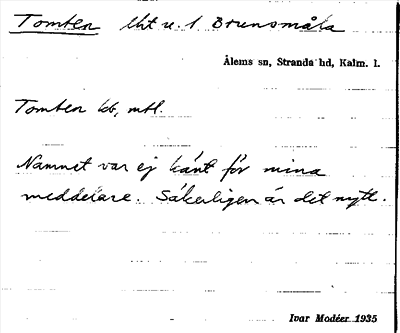 Tomten lht u. 1 Brunsmåla
Ålems sn, Stranda hd, Kalm. l.
Tomten kb, mtl.
Namnet var ej känt för mina
meddelare. Säkerligen är det nytt.
Ivar Modéer 1935